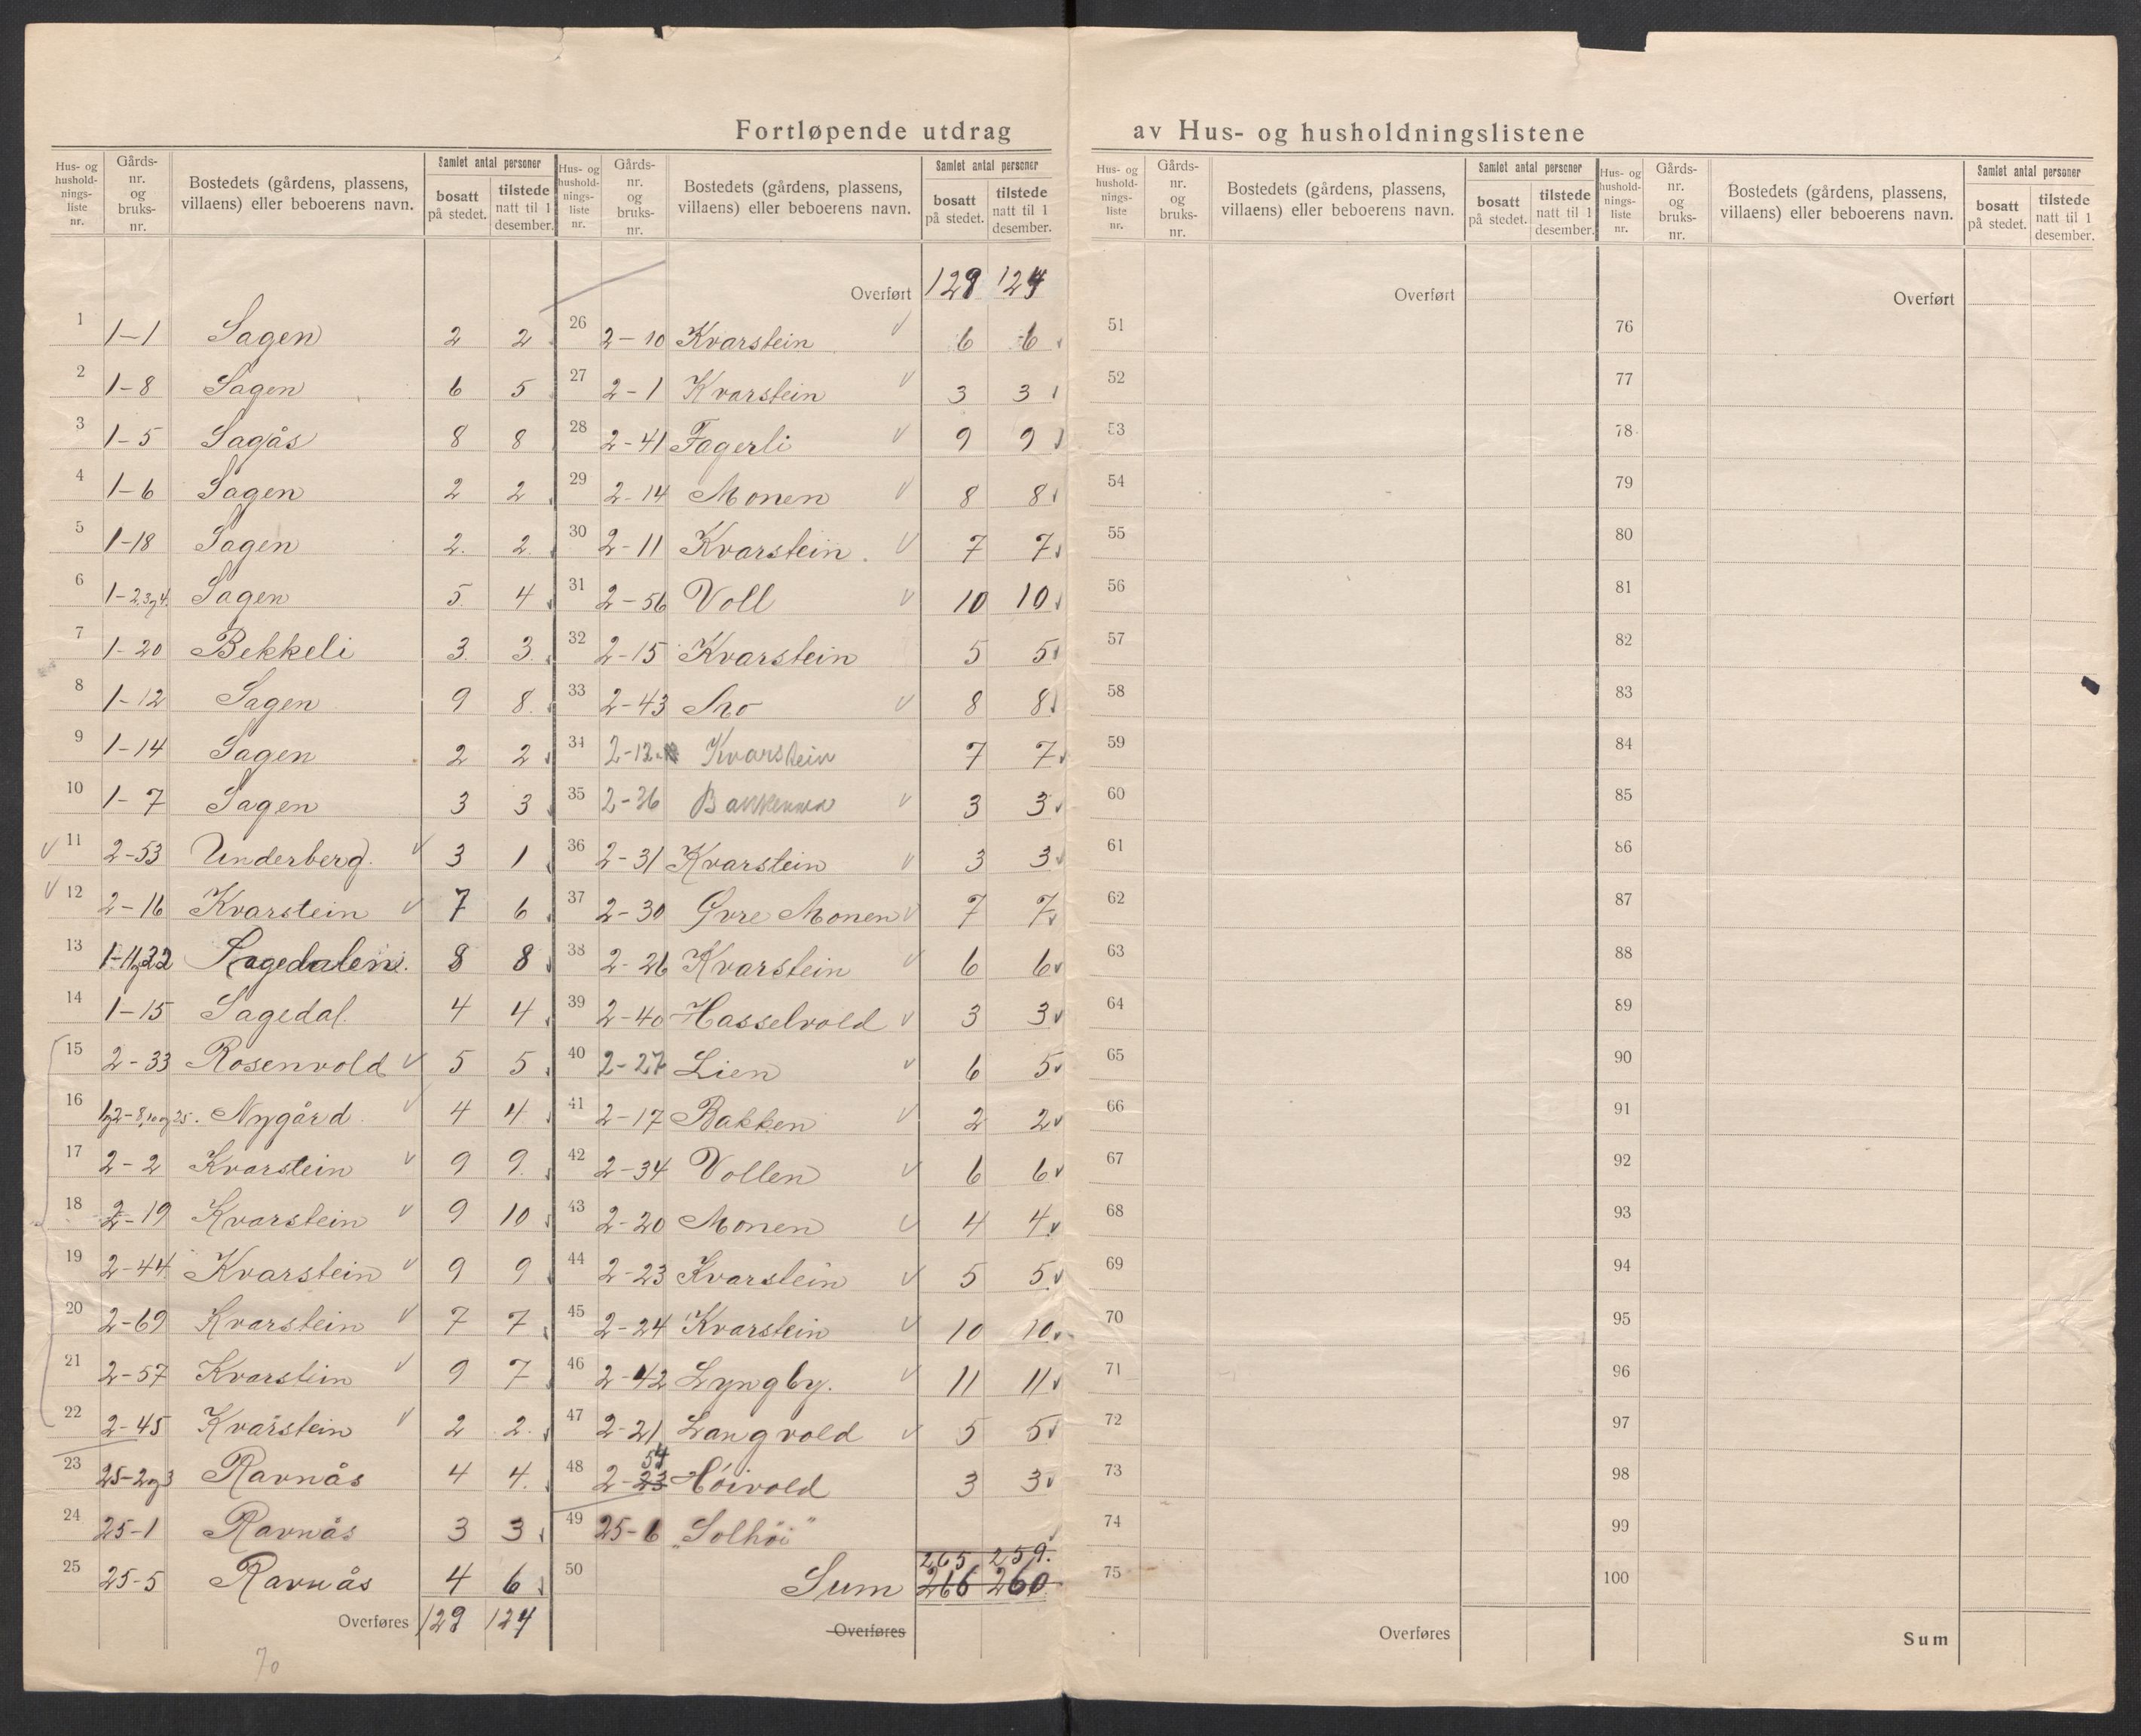 Fortløpende utdrag av Hus- og husholdningslistene
Hus- og hushold-nings-liste nr. Gårds-nr. og bruks-nr. Bostedets (gårdens, plassens, villaens) eller beboerens navn. Samlet antal personer bosatt på stedet. tilstede natt til 1 desember.
1 1-1 Sagen 2 2
2 1-8 Sagen 6 5
3 1-5 Sagås 8 8
4 1-6 Sagen 2 2
5 1-18 Sagen 2. 2
6 1-2,3og4. Sagen 5. 4
7 1-20 Bekkeli 3. 3.
8 1-12 Sagen 9 8.
9 1-14 Sagen 2 2
10 1-7 Sagen 3 3
11 2-53 Underberg. 3 1
12 2-16 Kvarstein 7 6
13 1-11og22 Sagedalen. 8 8
14 1-15 Sagedal. 4 4
15 2-33 Rosenvold 5 5
16 1og2-8,10og25. Nygård 4 4
17 2-2 Kvarstein 9 9.
18 2-19 Kvarstein 9 10
19 2-44 Kvarstein 9 9
20 2-69 Kvarstein 7 7
21 2-57 Kvarstein 9 7
22 2-45 Kvarstein 2 2.
23 25-2og3 Ravnås 4 4.
24 25-1 Ravnås 3 3
25 25-5 Ravnås 4 6
Overføres 129 124
70
Hus- og hushold-nings-liste nr. Gårds-nr. og bruks-nr. Bostedets (gårdens, plassens, villaens) eller beboerens navn. Samlet antal personer bosatt på stedet. tilstede natt til 1 desember.
Overført 129 124
26 2-10 Kvarstein 6 6
27 2-1 Kvarstein 3 3
28 2-41 Fagerli 9 9
29 2-14 Monen 8 8
30 2-11 Kvarstein. 7 7
31 2-56 Voll 10 10
32 2-15 Kvarstein 5 5
33 2-43 Mo 8 8
34 2-12 Kvarstein 7 7
35 2-36 3 3
36 2-31 Kvarstein 3 3
37 2-30 Øvre Monen 7 7
38 2-26 Kvarstein 6 6
39 2-40 Hasselvold 3 3
40 2-27 Lien 6 5
41 2-17 Bakken 2 2
42 2-34 Vollen 6 6
43 2-20 Monen 4 4
44 2-23 Kvarstein 5 5
45 2-24 Kvarstein 10 10
46 2-42 Lyngby. 11 11
47 2-21 Langvold 5 5
54
48 2-23 Höivold 3 3
49 25-6 "Solhöi"
265 259.
50 Sum 266 260
Overføres
Hus- og hushold-nings-liste nr. Gårds-nr. og bruks-nr. Bostedets (gårdens, plassens, villaens) eller beboerens navn. Samlet antal personer bosatt på stedet. tilstede natt til 1 desember.
Overført
51
52
53
54
55
56
57
58
59
60
61
62
63
64
65
66
67
68
69
70
71
72
73
74
75
Overføres
Hus- og hushold-nings-liste nr. Gårds-nr. og bruks-nr. Bostedets (gårdens, plassens, villaens) eller beboerens navn. Samlet antal personer bosatt på stedet. tilstede natt til 1 desember.
Overført
76
77
78
79
80
81
82
83
84
85
86
87
88
89
90
91
92
93
94
95
96
97
98
99
100
Sum